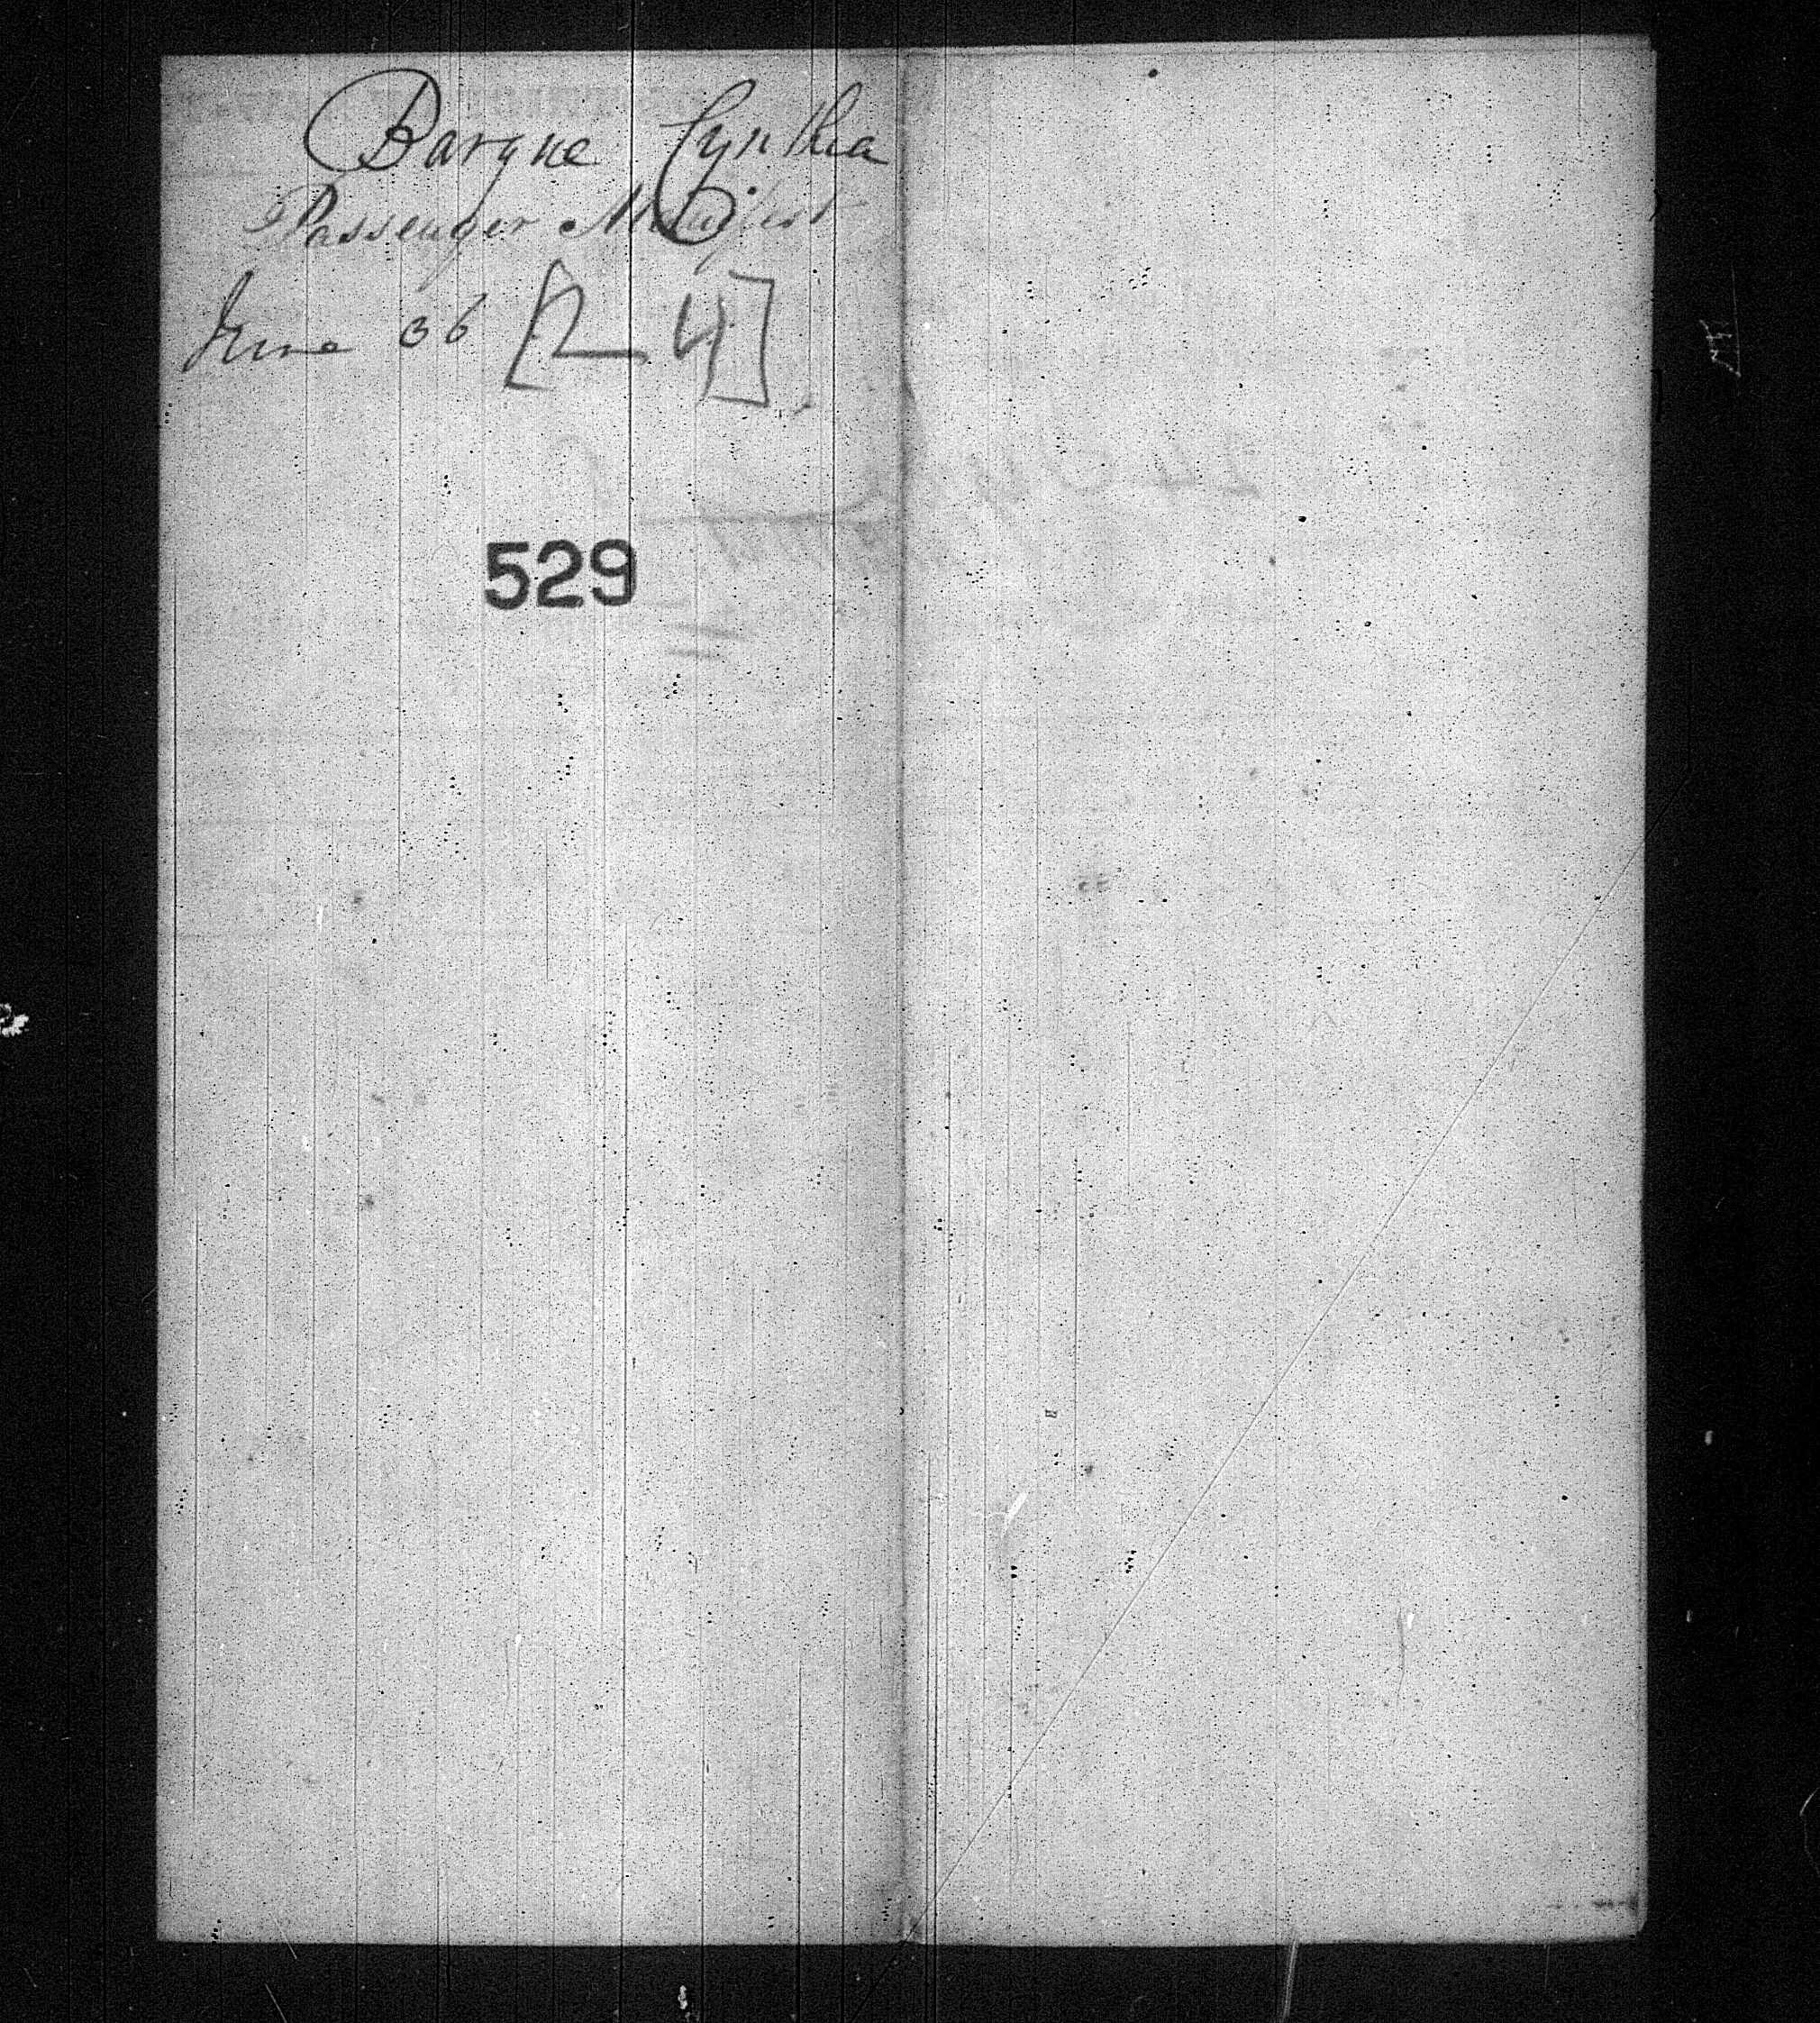 Barque Cynthea
Passenger Manifest
June 36 [24]
529